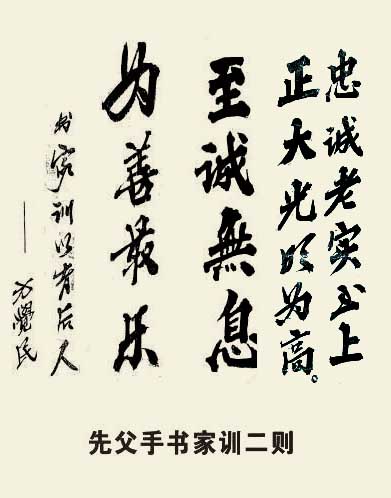 忠诚老实至上
正大光明为高。
至诚無息
为善最乐
书家训以育后人
——方覺民
先父手书家训二则